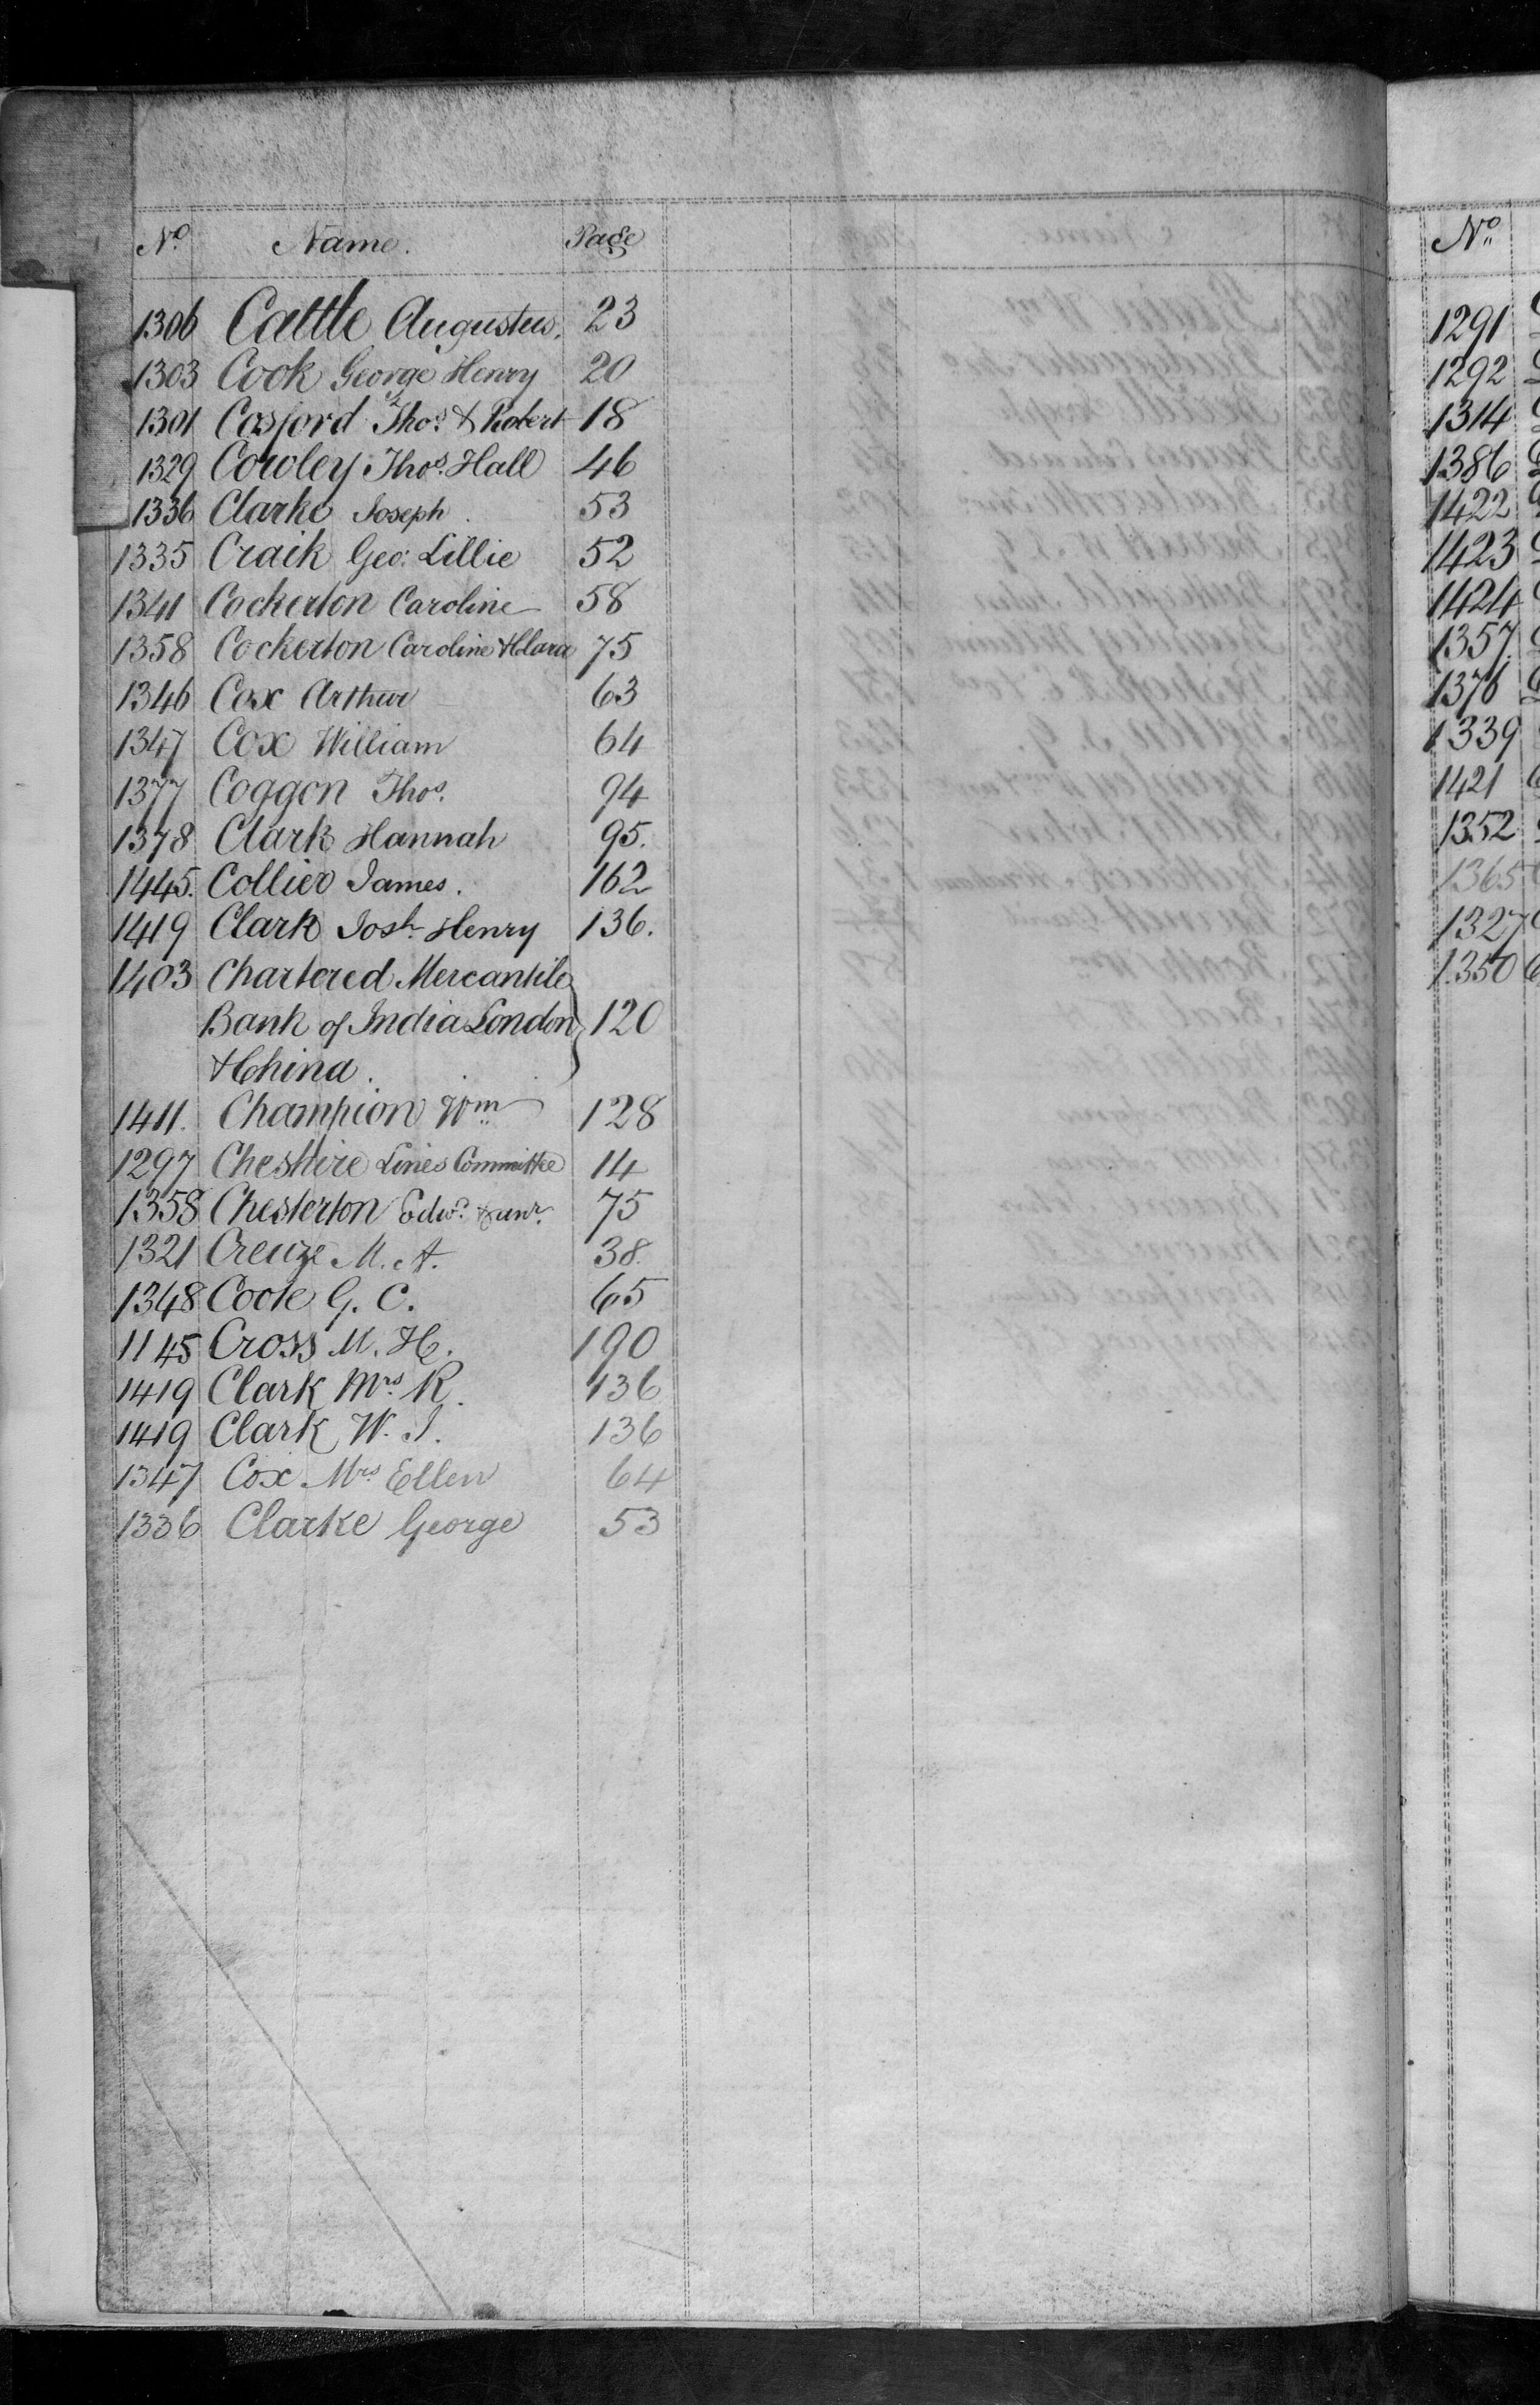 No. Name. Page
1306 Cattle Augustus. 23
1303 Cook George Henry 20
1301 Cosford Thos. & Robert 18
1329 Cowley Thos. Hall 46
1336 Clarke Joseph. 53
1335 Craik Geo. Lillie 52
1341 Cockerton Caroline 58
1358 Cockerton Caroline & Clara 75
1346 Cox Arthur 63
1347 Cox William 64
1377 Coggon Thos. 94
1378 Clark Hannah 95.
1445. Collier James. 162
1419 Clark Josh. Henry 136.
1403 Chartered Mercantile
Bank of India London 120
& China.
1411. Champion Wm 128
1297 Cheshire Lines Committee 14
1358 Chesterton Edwd. & anr. 75
1321 Creuze M. A. 38.
1348 Coote G. C. 65
1145 Cross M. H. 190
1419 Clark Mrs. R. 136
1419 Clark W. J. 136
1347 Cox Mrs Ellen 64
1336 Clarke George 53
No.
1291
1292
1314
1386
1422
1423
1424
1357
1376
1339
1421
1352
1365
1327
1350